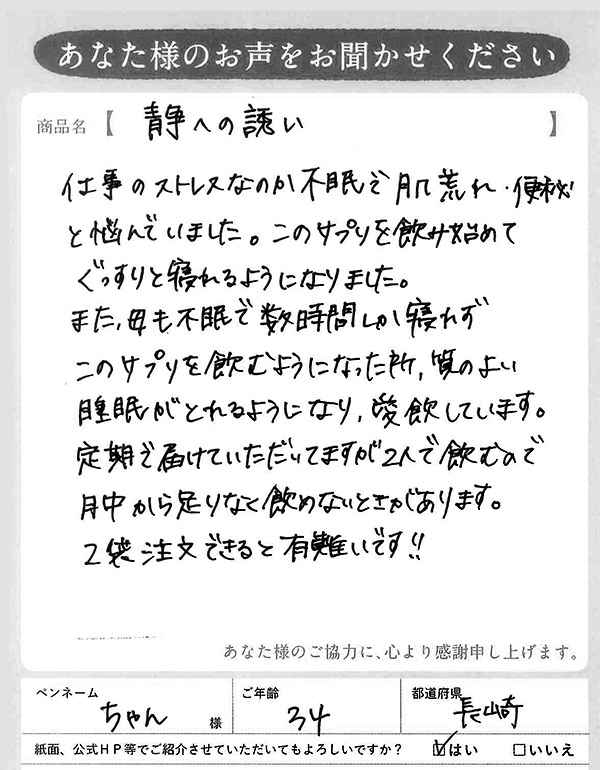 あなた様のお声をお聞かせください
商品名【 静への誘い 】
仕事のストレスなのか不眠で肌荒れ・便秘
と悩んでいました。このサプリを飲み始めて
ぐっすりと寝れるようになりました。
また、母も不眠で数時間しか寝れず
このサプリを飲むようになった所、質のよい
睡眠がとれるようになり、愛飲しています。
定期で届けていただいてますが2人で飲むので
月中から足りなく飲めないときがあります。
2袋注文できると有難いです!!
あなた様のご協力に、心より感謝申し上げます。
ペンネーム ちゃん 様 ご年齢 34 都道府県 長崎
紙面、公式HP等でご紹介させていただいてもよろしいですか? ☑はい □いいえ